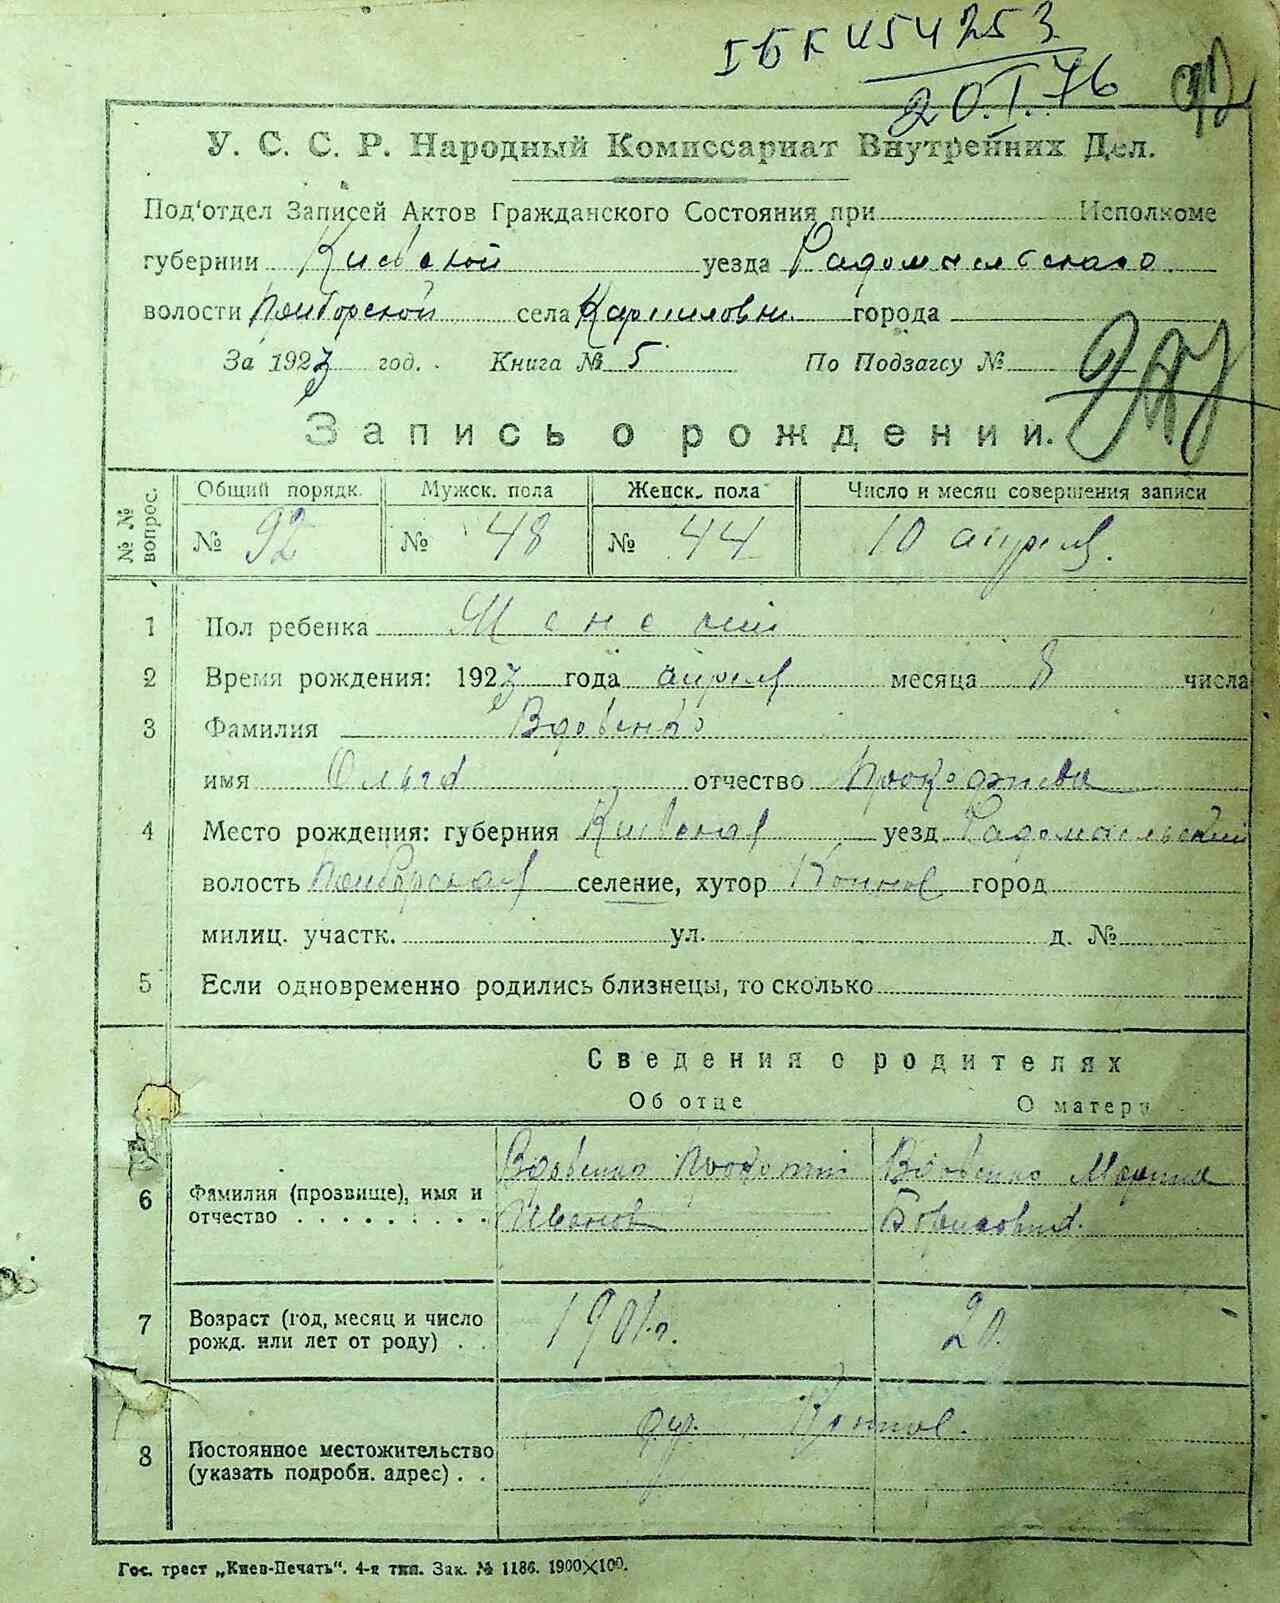 І БК 454253
20.I.76
У. С. С. Р. Народный Комиссариат Внутренних Дел.
Под'отдел Записей Актов Гражданского Состояния при Исполкоме
губернии Киевской уезда Радомысльского
волости села Карпиловки города
За 1923 год. Книга № 5 По Подзагсу №
Запись о рождении.
№№ вопрос.
Общий порядк. Мужск. пола Женск. пола Число и месяц совершения записи
№ 92 № 48 № 44 10 апреля.
1 Пол ребенка Женский
2 Время рождения: 1923 года апреля месяца 8 числа
3 Фамилия Вдовенко
имя Ольга отчество Прокофиева
4 Место рождения: губерния Киевская уезд Радомысльский
волость селение, хутор город
милиц. участк. ул. д. №
5 Если одновременно родились близнецы, то сколько
Сведения о родителях
Об отце О матери
6 Фамилия (прозвище), имя и отчество Вдовенко Прокопий Иванов Вдовенко Мария Борисовна.
7 Возраст (год, месяц и число рожд. или лет от роду) 1901г. 20.
8 Постоянное местожительство (указать подробн. адрес)
Гос. трест „Киев-Печать“. 4-я тип. Зак. № 1186. 1900×100.